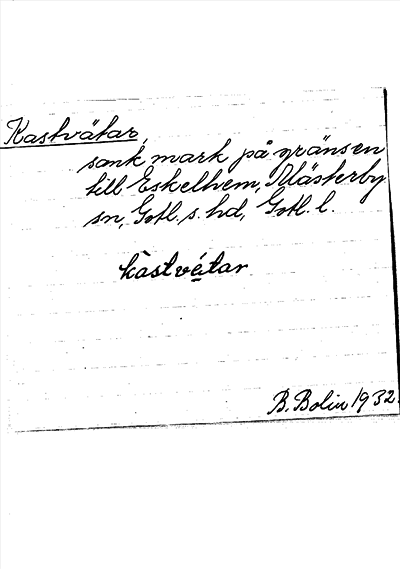 Kastvätar,
sank mark på gränsen
till Eskelhem, Mästerby
sn, Gotl. s. hd, Gotl. l.
kàstvétar
B. Bolin 1932.